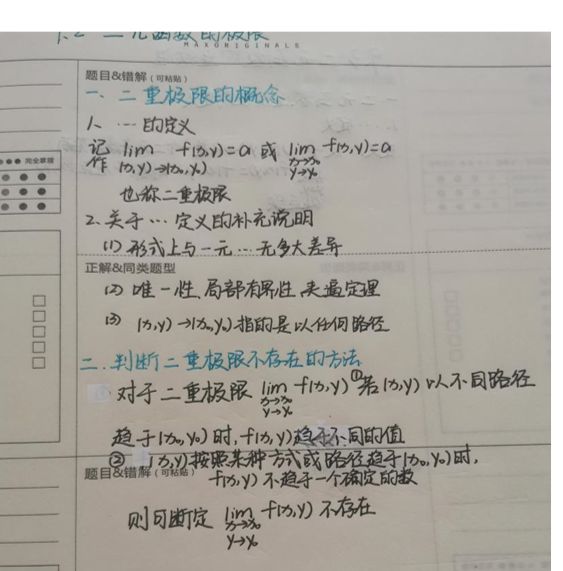 1.2 二元函数的极限
MAXORIGINALS
题目&错解（可粘贴）
一、二重极限的概念
1. … 的定义
记作 lim f(x,y)=a 或 lim f(x,y)=a
(x,y)→(x₀,y₀) x→x₀
y→y₀
也称二重极限
2. 关于 … 定义的补充说明
(1) 形式上与一元 … 无多大差异
正解&同类题型
(2) 唯一性、局部有界性、夹逼定理
(3) (x,y)→(x₀,y₀) 指的是以任何路径
二. 判断二重极限不存在的方法
对于二重极限 lim f(x,y) ①若(x,y)以不同路径
x→x₀
y→y₀
趋于(x₀,y₀)时, f(x,y)趋于不同的值
② (x,y)按照某种方式或路径趋于(x₀,y₀)时,
题目&错解（可粘贴）
f(x,y) 不趋于一个确定的数
则可断定 lim f(x,y) 不存在
x→x₀
y→y₀
完全掌握